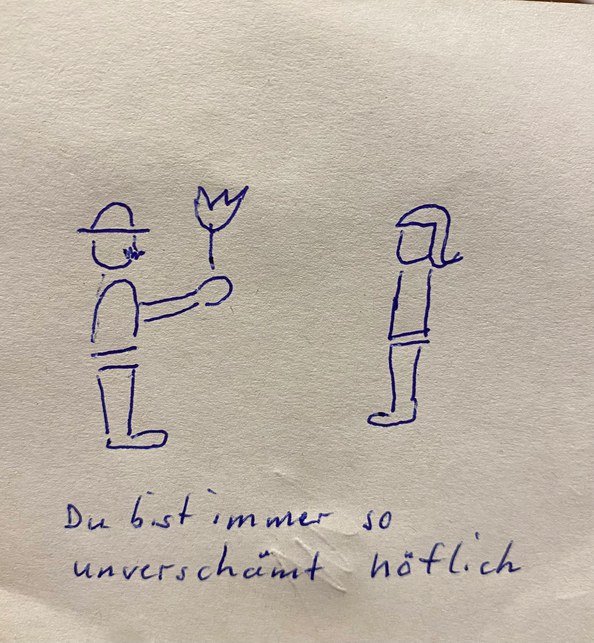 Du bist immer so
unverschämt höflich